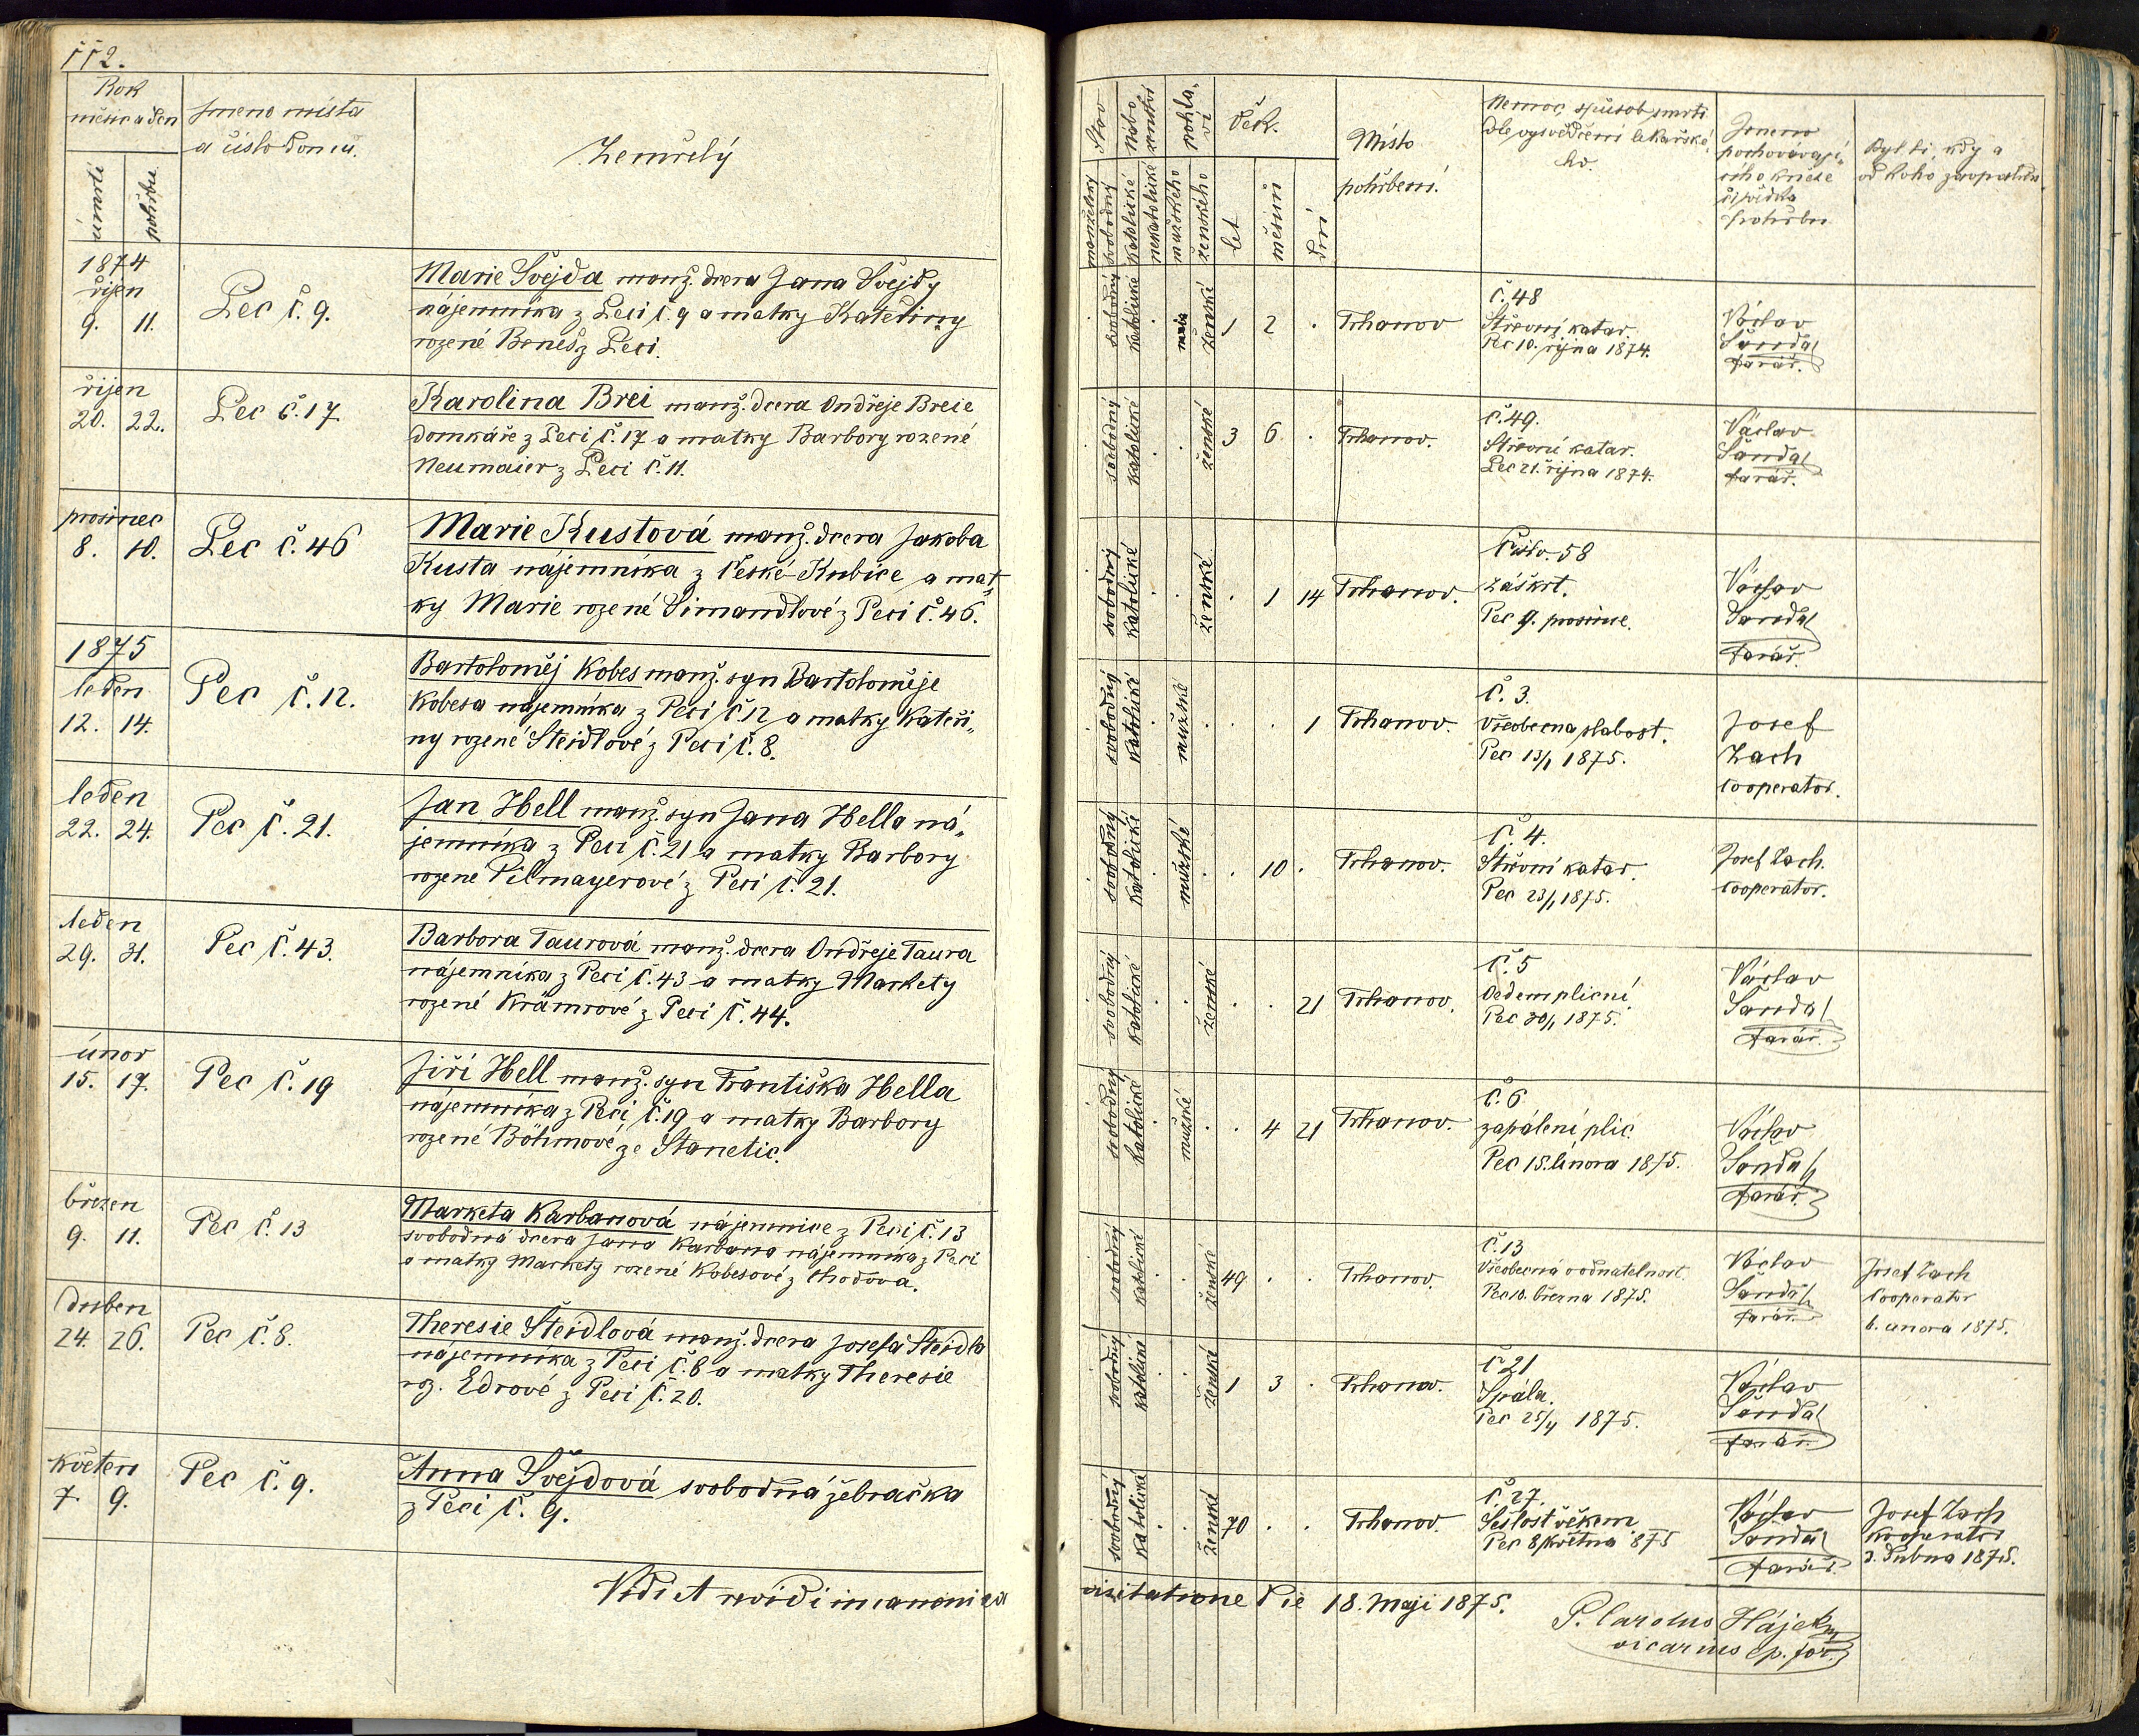 112.
Rok
měsíc a den
úmrtí
pohřbu
Jmeno místa
a číslo domu.
Zemřelý
1874
říjen
9. 11.
Pec č. 9.
Marie Švejda manž. dcera Jana Švejdy
nájemníka z Peci č. 9 a matky Kateřiny
rozené Beneš z Peci.
říjen
20. 22.
Pec č. 17
Karolina Brei manž. dcera Ondřeje Breie
domkáře z Peci č. 17 a matky Barbory rozené
Neumaier z Peci č. 11.
prosinec
8. 10.
Pec č. 46
Marie Kustová manž. dcera Jakoba
Kusta nájemníka z České Kubice a mat„
ky Marie rozené Simandlové z Peci č. 46.
1875
leden
12. 14.
Pec č. 12.
Bartoloměj Kobes manž. syn Bartoloměje
Kobesa nájemníka z Peci č. 12 a matky Kateři„
ny rozené Steidlové z Peci č. 8.
leden
22. 24.
Pec č. 21.
Jan Hell manž. syn Jana Hella ná„
jemníka z Peci č. 21 a matky Barbory
rozené Pilmayerové z Peci č. 21.
leden
29. 31.
Pec č. 43.
Barbora Taurová manž. dcera Ondřeje Taura
nájemníka z Peci č. 43 a matky Markety
rozené Krämrové z Peci č. 44.
únor
15. 17.
Pec č. 19
Jiří Hell manž. syn Františka Hella
nájemníka z Peci č. 19 a matky Barbory
rozené Böhmové ze Stanetic.
březen
9. 11.
Pec č. 13
Marketa Karbanová nájemnice z Peci č. 13
svobodná dcera Jana Karbana nájemníka z Peci
a matky Markety rozené Kobesové z Chodova.
duben
24. 26.
Pec č. 8.
Theresie Steidlová manž. dcera Josefa Steidla
nájemníka z Peci č. 8 a matky Theresie
roz. Edrové z Peci č. 20.
květen
7. 9.
Pec č. 9.
Anna Švejdová svobodná žebračka
z Peci č. 9.
Vidi et revidi in canonica
Stav
manželský
svobodný
nábo„
ženství
katolické
nekatolické
pohla„
ví
mužského
ženského
Věk.
let
měsíců
dní
Místo
pohřbení.
Nemoc, spůsob smrti
dle vysvědčení lekařské„
ho.
Jmeno
pochovávají„
cího kněze
či svědka
pohřbu
Byl-li, kdy a
od koho zaopatřen
svobodný katolické . ženské 1 2 . Trhanov
č. 48
Střevní katar.
Pec 10. října 1874.
Václav
Šanda
farář.
svobodný katolické . . ženské 3 6 . Trhanov.
č. 49.
Střevní katar.
Pec 21. října 1874.
Václav
Šanda
farář.
svobodný katolické . . ženské . 1 14 Trhanov.
Číslo 58
Záškrt.
Pec 9. prosince.
Václav
Šanda
farář.
svobodný katolické . mužské . . . 1 Trhanov.
č. 3.
Všeobecna slabost.
Pec 13/1 1875.
Josef
Zach
cooperator.
svobodný katolické . mužské . . 10 . Trhanov.
č. 4.
Střevní katar.
Pec 23/1 1875.
Josef Zach.
cooperator.
svobodný katolické . . ženské . . 21 Trhanov.
č. 5
Oedem plicní
Pec 30/1 1875.
Václav
Šanda
farář.
svobodný katolické . mužské . . 4 21 Trhanov.
č. 6
zapálení plic.
Pec 15. února 1875.
Václav
Šanda
farář.
svobodný katolické . . ženské 49 . . Trhanov.
č. 13
Všeobecná vodnatelnost.
Pec 10. března 1875.
Václav
Šanda
farář.
Josef Zach
Cooperator
6. února 1875.
svobodný katolické . . ženské 1 3 . Trhanov.
č 21
Spála.
Pec 25/4 1875.
Václav
Šanda
farář.
svobodný katolické . . ženské 70 . . Trhanov.
č. 27.
Sešlost věkem
Pec 8 května 875
Václav
Šanda
farář.
Josef Zach
kooperator
3. dubna 1875.
visitatione die 18. Maji 1875.
P. Carolus Hájek
vicarius ep. for.